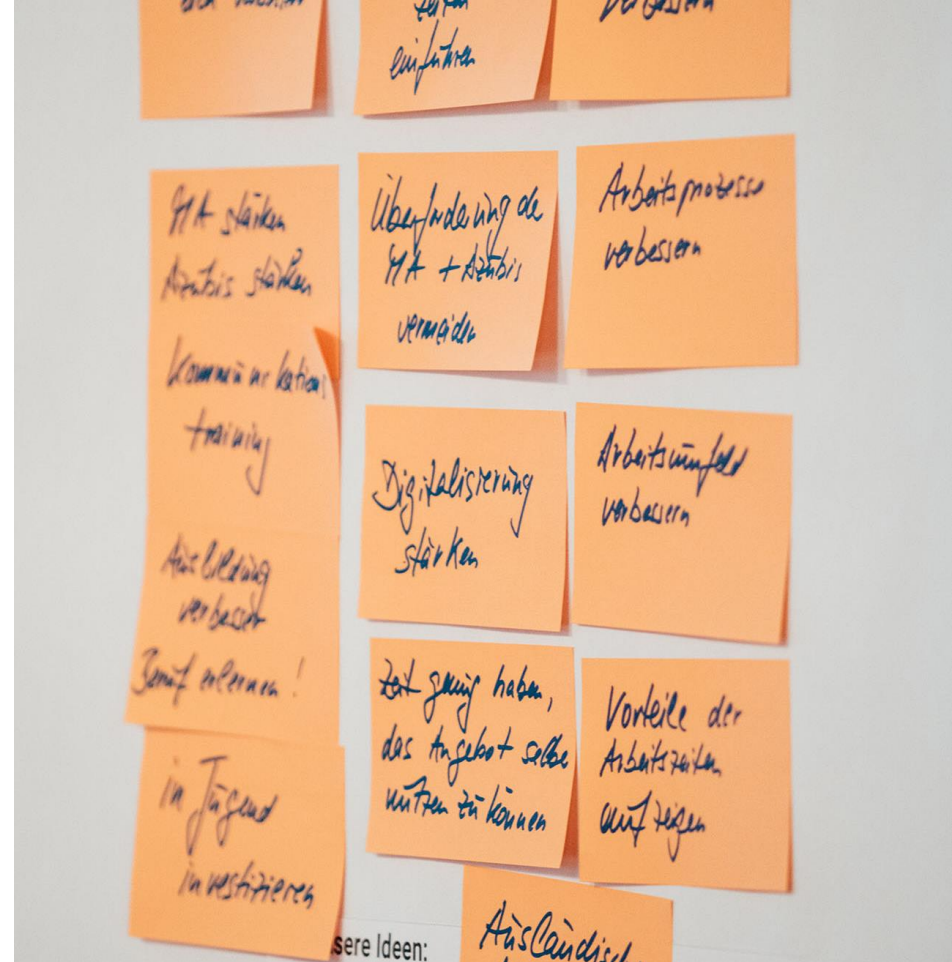 einführen
verbessern
MA stärken
Azubis stärken
Kommunikations
training
Ausbildung
verbesser
Beruf erlernen!
in Jugend
investizieren
Überforderung de
MA + Azubis
vermeiden
Digitalisierung
stärken
Zeit genug haben,
das Angebot selbe
nutzen zu können
Arbeitsprozesse
verbessern
Arbeitsumfeld
verbessern
Vorteile der
Arbeitszeiten
aufzeigen
sere Ideen:
Ausländisch